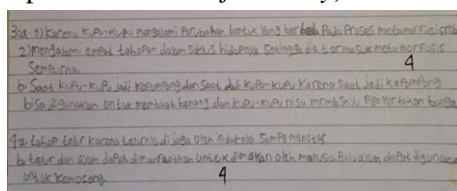 3. a. 1) Karena kupu-kupu mengalami Perubahan bentuk yang berbeb Pada Proses metamor
2) mengalami empat tahapan dalam siklus hidupnya Sehingga dia termasuk metamorfosis
Sempurna.
4
b. Saat kupu-kupu jadi kepompong dan Saat jadi kupu-kupu Karena Saat jadi kepompong
bisa digunakan Untuk membuat benang dan kupu-kupu bisa membantu Penyerbukan bunga
4 a. tahap telur karena telurnya dijaga oleh induknya Sampe menetas
b. telur dan ayam dapat dimanfaatkan Untuk dimakan oleh manusia Bulu ayam dapat digunakan
Untuk kemoceng
4